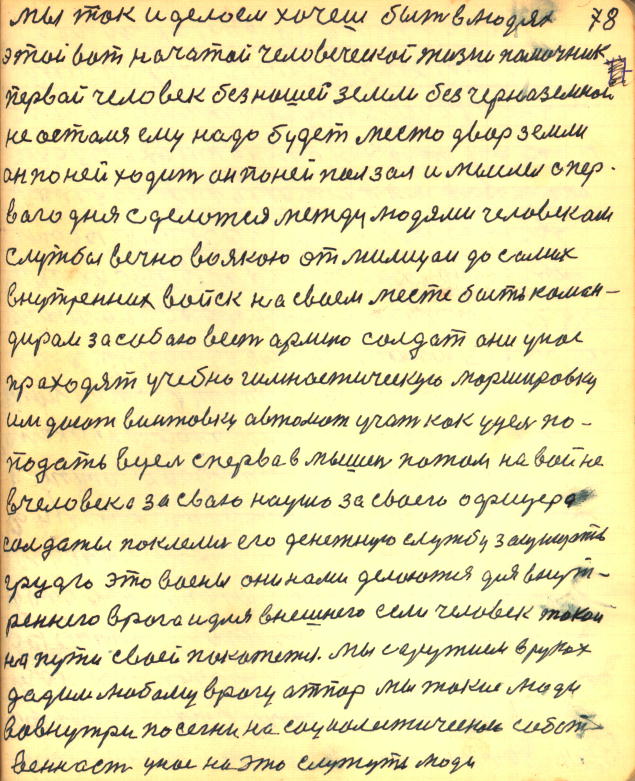 мы так и делоем хочеш быт в людях 78
этой вот началой человеческой жизни памочник
первай человек без нашей земли без черноземной
не осталя ему надо будет место двор земли
он по ней ходит он по ней ползал и мышлел с пер-
ваго дня сделотся между людями человекам
службы вечно воякою от милицаи до самих
внутренних войск на своем месте быть коман-
дирам за собаю вест армию солдат они у нас
праходят учебно гимностическую маршировку
им дают винтовку автомат учат как цуел по-
подать в цел сперва в мышен потом на войне
в человека за сваю нацию за своего офицера
солдаты поклели его денежную службу защищать
грудю это воены они нами делоются для внут-
реннего врага и для внешнего если человек такой
на пути своей покожеты. мы с аружием в руках
дадим любому врагу атпор мы такие люди
вовнутри посегни на социолистическою собст
венност у нас на это служуть люди